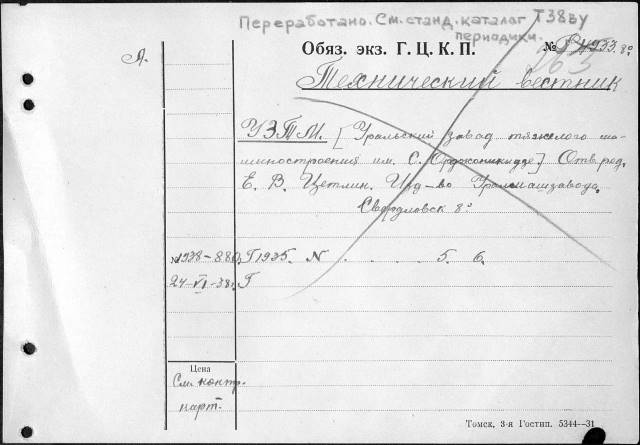 Переработано. См. станд. каталог Т38ву
периодики.
Обяз. экз. Г. Ц. К. П. № 1953. 8°
263
Л.
Технический вестник
УЗТМ. [Уральский завод тяжелого ма-
шиностроения им. С. Орджоникидзе.] Отв. ред.
Е. В. Цетлин. Изд-во Уралмашзавода.
Свердловск 8°
1938-880. Г 1935. N . . . . . 5. 6.
24-VI-38г. Г
Цена
См. контр.
карт.
Томск, 3-я Гостип. 5344—31